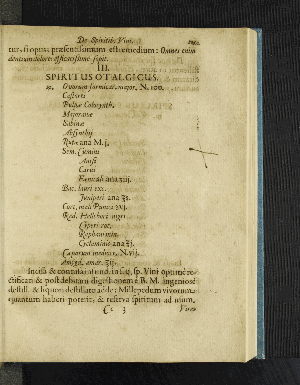 De Spiritib. Vini.
tur, si opus; præsentissimum est remedium: Omnes enim
dentium dolores efficacissime sopit.
III.
SPIRITUS OTALGICUS.
℞. Ovorum formicar. major. N. 100.
Castorei
Pulpæ Colocynth.
Majoranæ
Sabinæ
Absinthij
Rutæ ana M. j.
Sem. Cumini
Anisi
Carui
Fœniculi ana ʒij.
Bac. lauri exc.
Juniperi ana ʒs.
Cort. mali Punici ʒvj.
Rad. Hellebori nigri
Cyperi rot.
Raphani min.
Cyclaminis ana ʒj.
Ceparum mediocr. N. vij.
Amigd. amar. ʒij.
Incisa & contusa infund. in sq. sp. Vini optime re-
ctificati & post debitam digestionem à B. M. ingeniosè
destill. & liquori destillato adde; Millepedum vivorum,
quantum haberi poterit, & reserva spiritum ad usum,
Cc 3